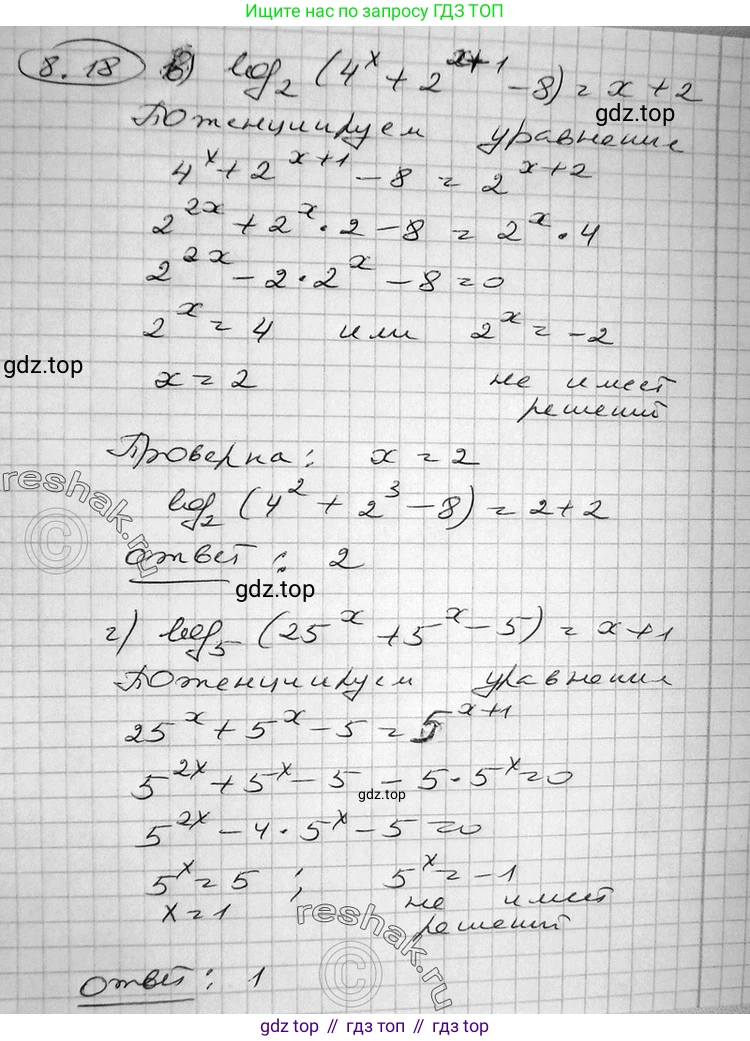 Ищите нас только по запросу ГДЗ ТОП
8.18 в) log₂ (4ˣ + 2ˣ⁺¹ - 8) = x + 2
gdz.top
Потенциируем уравнение
4ˣ + 2ˣ⁺¹ - 8 = 2ˣ⁺²
2²ˣ + 2ˣ · 2 - 8 = 2ˣ · 4
2²ˣ - 2 · 2ˣ - 8 = 0
2ˣ = 4 или 2ˣ = -2
gdz.top
x = 2 не имеет
решений
Проверка: x = 2
reshak.ru
©
log₂ (4² + 2³ - 8) = 2 + 2
Ответ: 2
gdz.top
г) log₅ (25ˣ + 5ˣ - 5) = x + 1
Потенциируем уравнения
25ˣ + 5ˣ - 5 = 5ˣ⁺¹
5²ˣ + 5ˣ - 5 - 5 · 5ˣ = 0
gdz.top
5²ˣ - 4 · 5ˣ - 5 = 0
5ˣ = 5 ; 5ˣ = -1
x = 1 не имеет
решений
reshak.ru
©
Ответ: 1
gdz.top // гдз топ // гдз.top